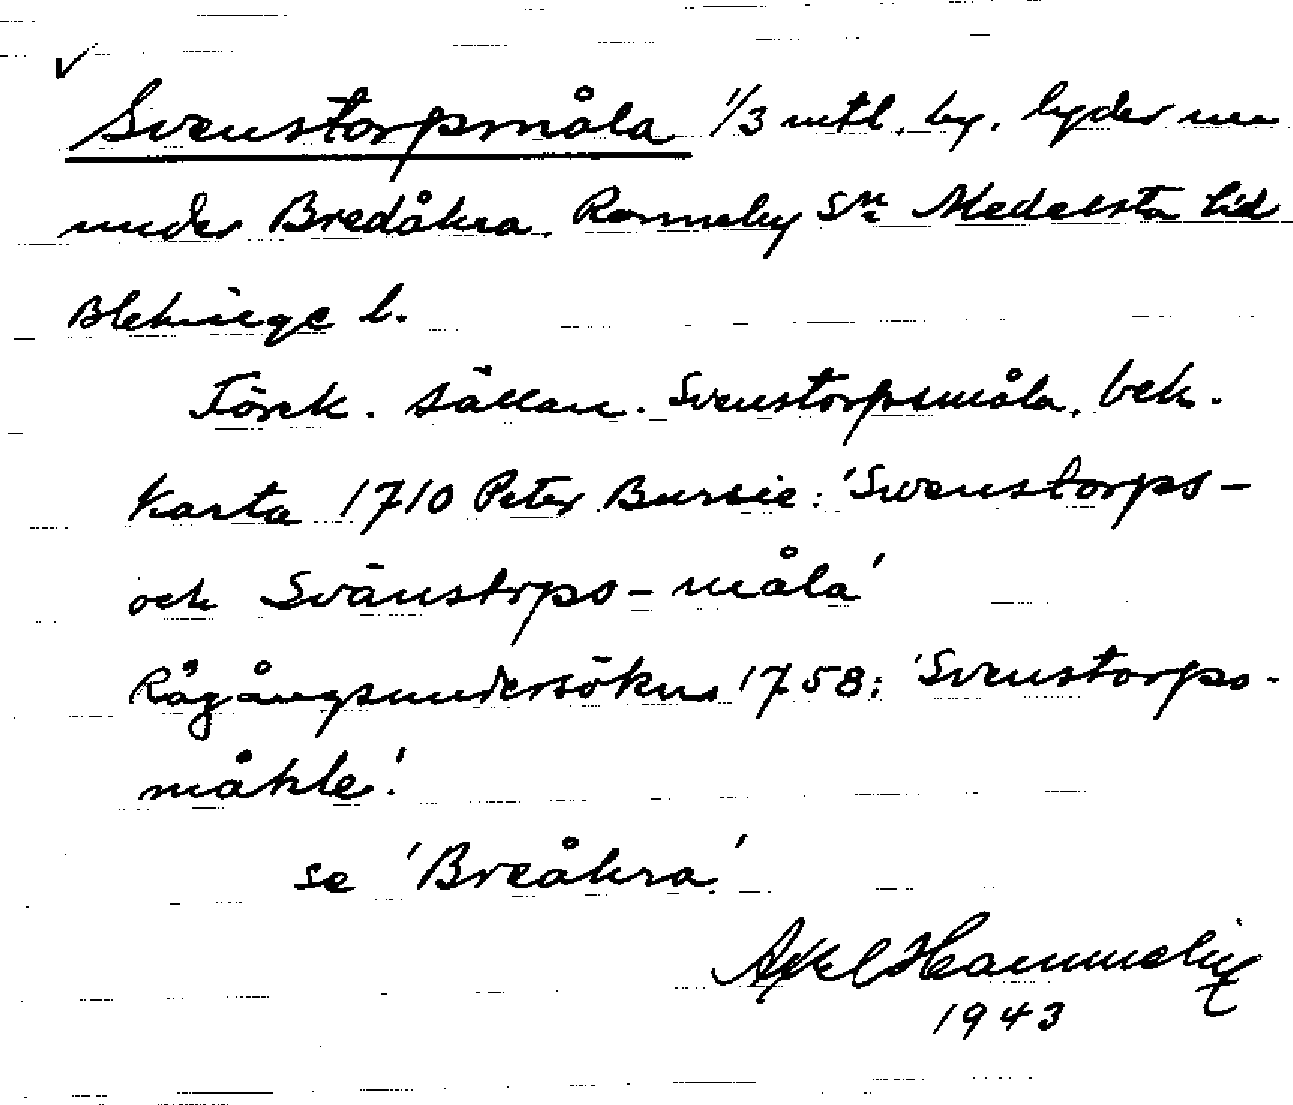 Svenstorpmåla 1/3 mtl. by. lyder nu
under Bredåkra. Ronneby sn. Medelsta hd
Blekinge l.
Förek. sällan. Svenstorpsmåla, bek.
Karta 1710 Peter Bursie: 'Swenstorps-
och Svänstrps-måla'
Rågångsundersökn 1758: 'Svenstorps-
måhle'.
se 'Breåkra'.
Axel Hammelig
1943